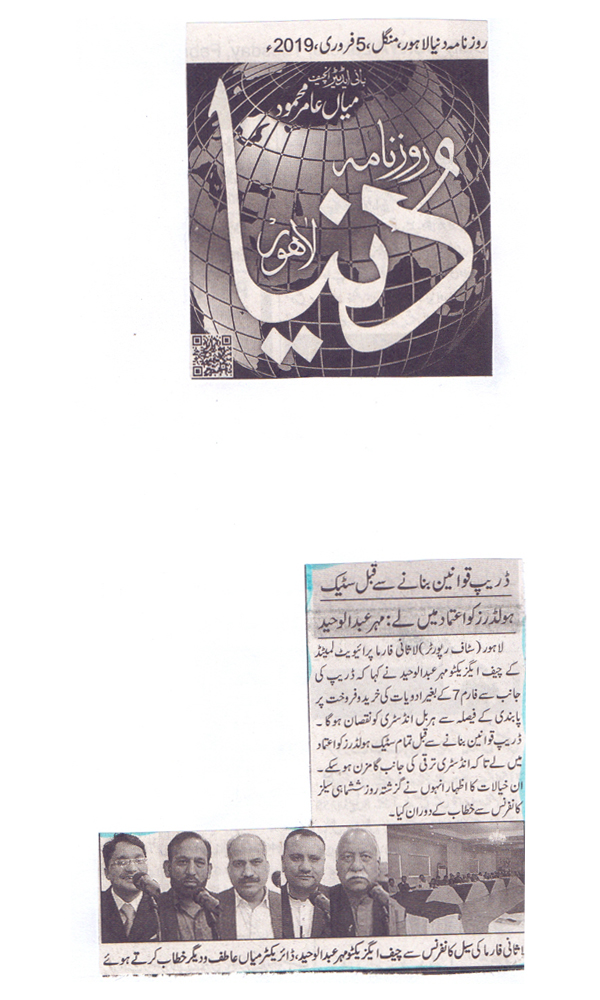 روزنامہ دنیا لاہور، منگل، 5 فروری، 2019ء
بانی ایڈیٹر انچیف
میاں عامر محمود
روزنامہ
دُنیا
لاہور
ڈریپ قوانین بنانے سے قبل سٹیک
ہولڈرز کو اعتماد میں لے : مہر عبدالوحید
لاہور (سٹاف رپورٹر) لاثانی فارما پرائیویٹ لمیٹڈ
کے چیف ایگزیکٹو مہر عبدالوحید نے کہا کہ ڈریپ کی
جانب سے فارم 7 کے بغیر ادویات کی خرید و فروخت پر
پابندی کے فیصلہ سے ہربل انڈسٹری کو نقصان ہوگا۔
ڈریپ قوانین بنانے سے قبل تمام سٹیک ہولڈرز کو اعتماد
میں لے تاکہ انڈسٹری ترقی کی جانب گامزن ہو سکے۔
ان خیالات کا اظہار انہوں نے گزشتہ روز ششماہی سیلز
کانفرنس سے خطاب کے دوران کیا۔
لاثانی فارما کی سیل کانفرنس سے چیف ایگزیکٹو مہر عبدالوحید، ڈائریکٹر میاں عاطف و دیگر خطاب کرتے ہوئے